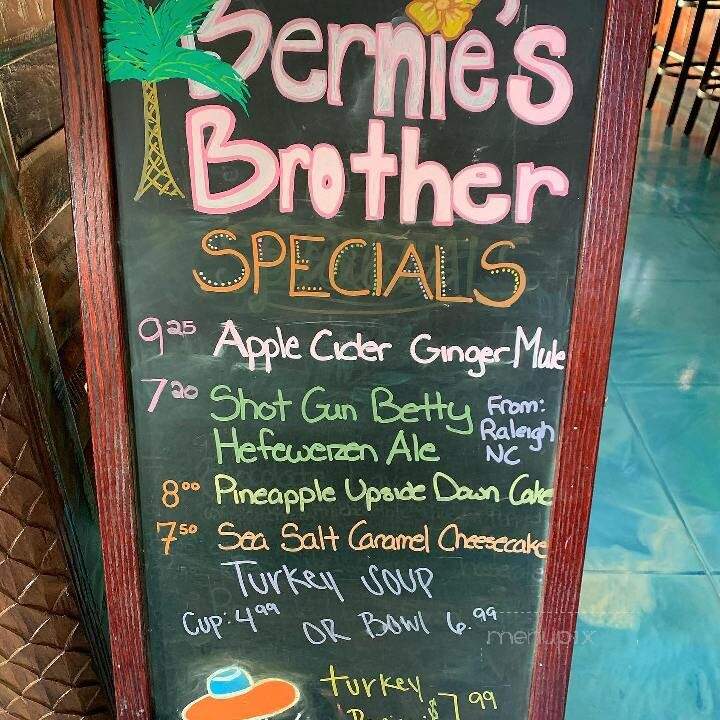 Bernie's
Brother
SPECIALS
9 25 Apple Cider Ginger Mule
7 20 Shot Gun Betty
Hefeweizen Ale
From:
Raleigh
NC
8 00 Pineapple Upside Down Cake
7 50 Sea Salt Caramel Cheesecake
Turkey Soup
Cup: 4 99 OR Bowl 6.99
menupix
turkey
$7 99